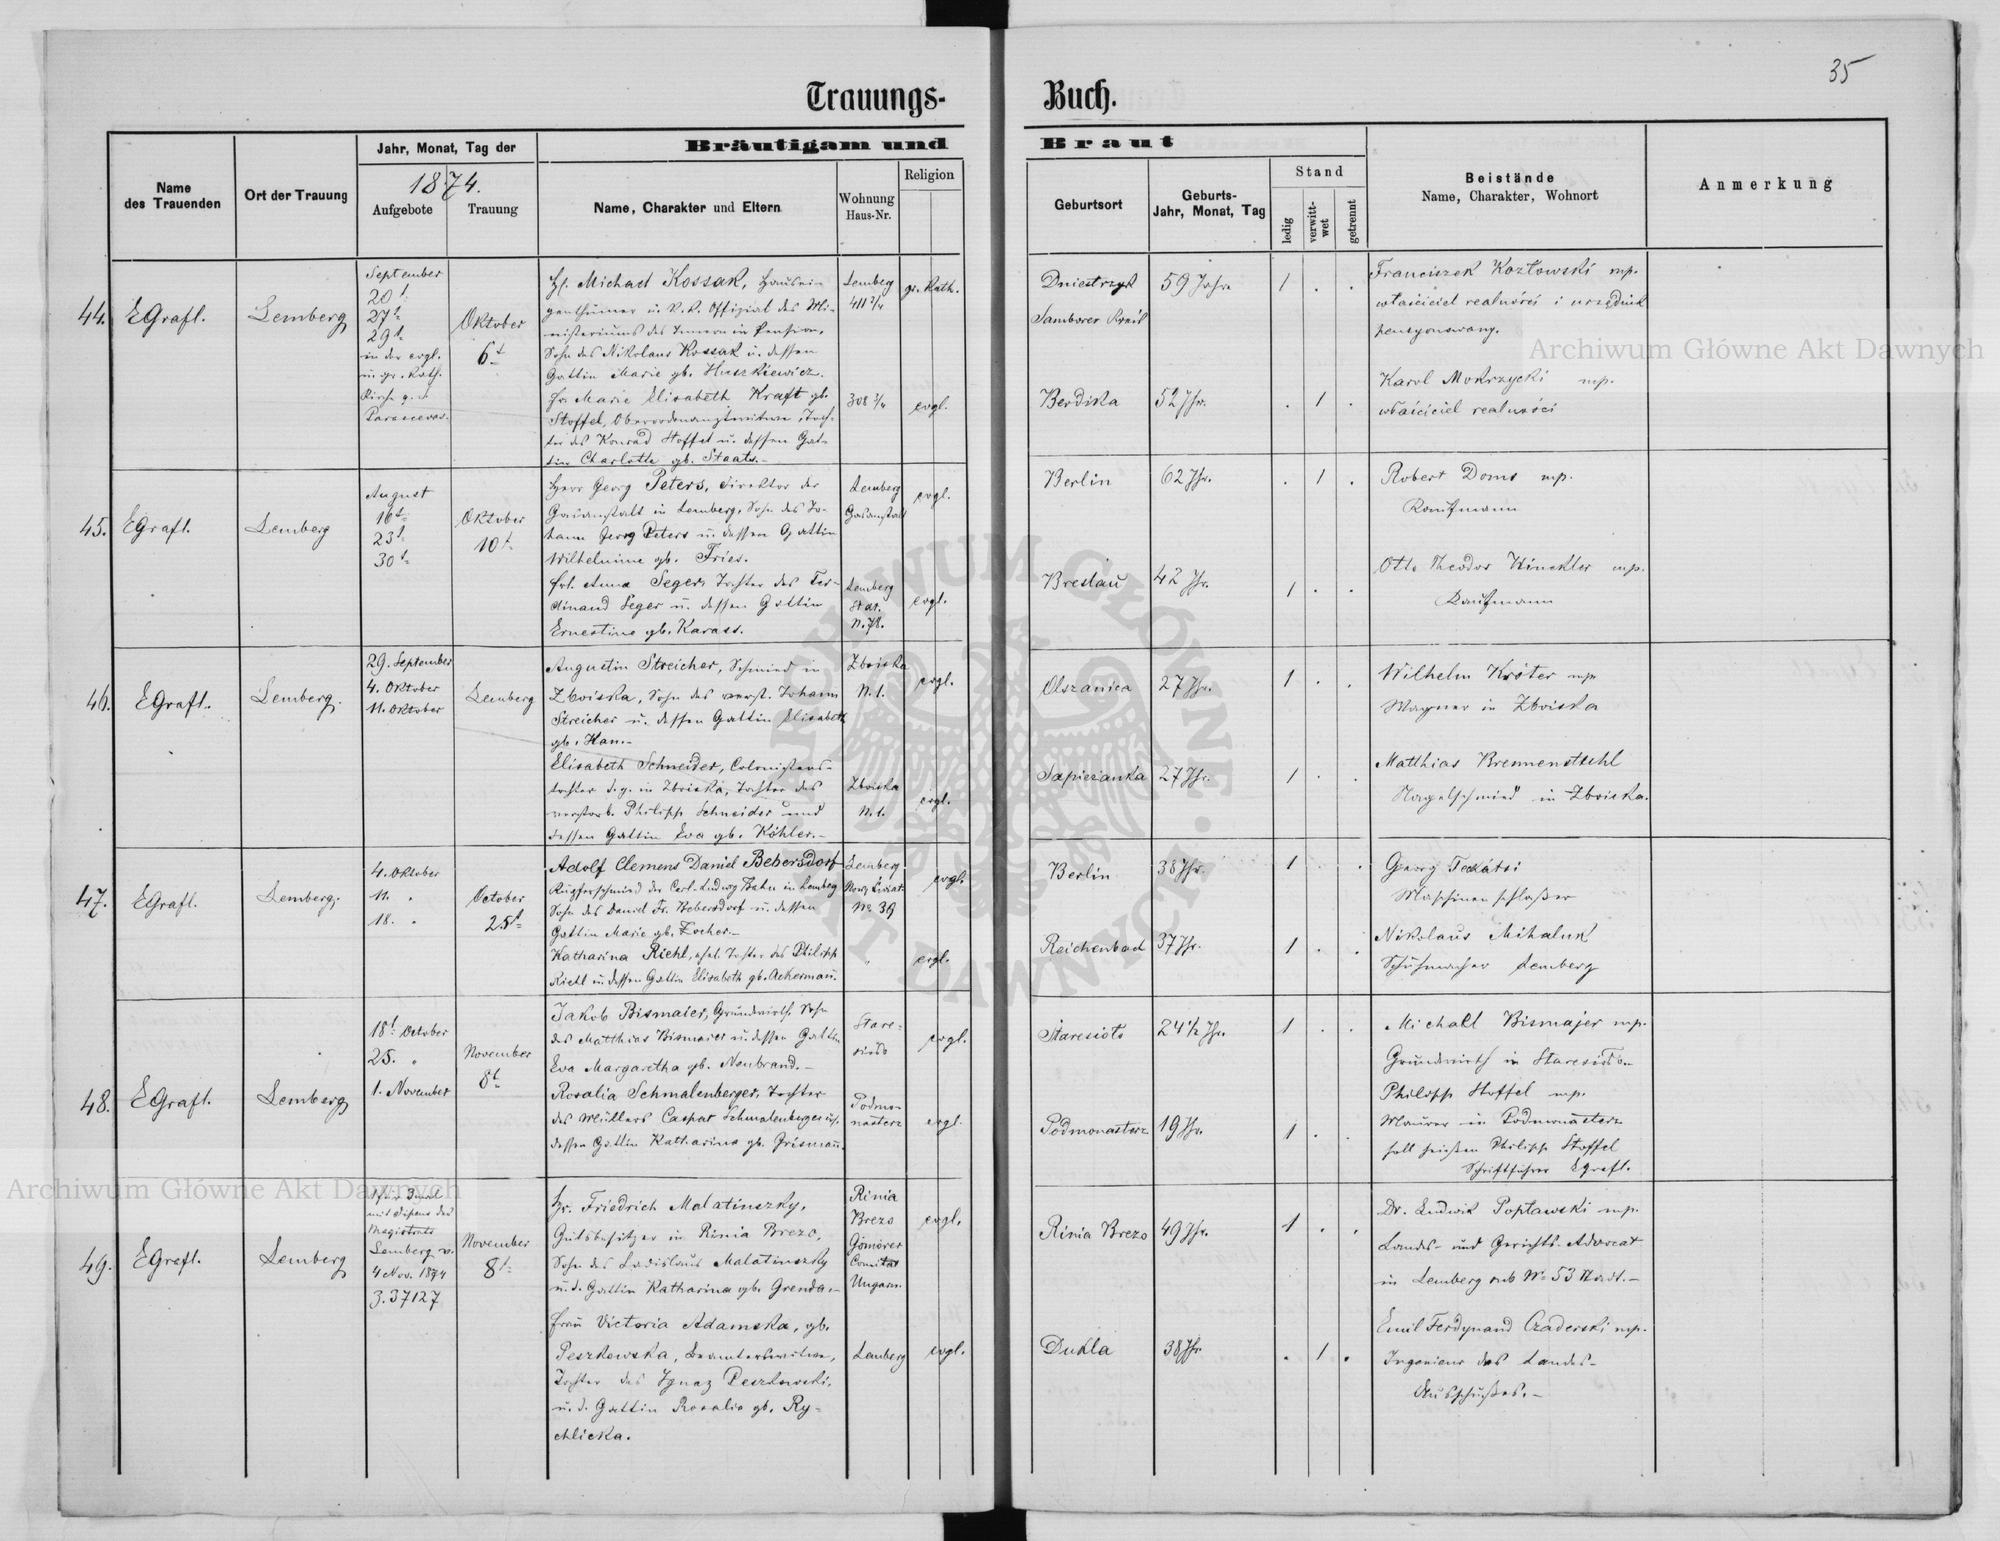 35
Trauungs-Buch.
Name des Trauenden
Ort der Trauung
Jahr, Monat, Tag der
1874.
Aufgebote
Trauung
Bräutigam und Braut
Name, Charakter und Eltern
Wohnung Haus-Nr.
Religion
Geburtsort
Geburts-Jahr, Monat, Tag
Stand
ledig
verwittwet
getrennt
Beistände
Name, Charakter, Wohnort
Anmerkung
44.
EGrafl.
Lemberg
September
20t
27t
29t
in der evgl.
u. gr. Kath.
Oktober
6t
H. Michael Kossak, Hausei-
genthümer u. K. K. Offizial des Mi-
nisteriums des Innern in Pension,
Sohn des Nikolaus Kossak u. dessen
Gattin Marie gb. Huszkiewicz.
Fr. Marie Elisabeth Kraft gb.
Stoffel, Toch-
ter des Konrad Stoffel u. dessen Gat-
tin Charlotte gb. Staats.-
Lemberg
411 2/4
gr. Kath.
308 3/4
evgl.
Samborer Kreis
59 Jahr
1 . .
52 Jhr.
. 1 .
Franciszek Kozłowski mp.
właściciel realności i urzędnik
pensyonowany.
Karol Mokrzycki mp.
właściciel realności
45.
EGrafl.
Lemberg
August
16t
23t
30t
Oktober
10t
Herr Georg Peters, Direktor der
Gasanstalt in Lemberg, Sohn des Jo-
hann Georg Peters u. dessen Gattin
Wilhelmine gb. Fries.
Frl. Anna Seger, Tochter des Fer-
dinand Seger u. dessen Gattin
Ernestine gb. Karass.
Lemberg
Gasanstalt
evgl.
Lemberg
Stdt.
evgl.
Berlin
62 Jhr.
. 1 .
Breslau
42 Jhr.
1 . .
Robert Doms mp.
Kaufmann
Otto Theodor Winckler mp.
Kaufmann
46.
EGrafl.
Lemberg.
29. September
4. Oktober
11. Oktober
Lemberg
Augustin Streicher, Schmied in
Zboiska, Sohn des verst. Johann
Streicher u. dessen Gattin Elisabeth
gb. Han.-
Elisabeth Schneider, Colonistens-
tochter in Zboiska, Tochter des
verstorb. Philipp Schneider und
dessen Gattin Eva gb. Köhler.-
Zboiska
N. 1.
evgl.
Zboiska
N. 1.
evgl.
Olszanica
27 Jhr.
1 . .
Sapiezanka
27 Jhr.
1 . .
Wilhelm Kröter mp
Wagner in Zboiska
Matthias Brennenstuhl
Nagelschmied in Zboiska.
47.
EGrafl.
Lemberg.
4. Oktober
11. "
18. "
October
25t
Adolf Clemens Daniel Bebersdorf
Kupferschmied der Carl-Ludwig Bahn in Lemberg
Sohn des Daniel Fr. Bebersdorf u. dessen
Gattin Marie gb. Zocher.-
Katharina Riehl, Tochter des Philipp
Riehl u. dessen Gattin Elisabeth gb. Ackermann.
Lemberg
Nowy Świat
No 39
evgl.
"
evgl.
Berlin
38 Jhr.
1 . .
Reichenbach
37 Jhr.
1 . .
Georg
Maschinenschlosser
Nikolaus Mihaluk
Schuhmacher Lemberg
48.
EGrafl.
Lemberg
18t October
25. "
1. November
November
8t
Jakob Bismaier, Grundwirth, Sohn
des Matthias Bismaier u. dessen Gattin
Eva Margaretha gb. Neubrand.-
Rosalia Schmalenberger, Tochter
des Müllers Caspar Schmalenberger u.
dessen Gattin Katharina gb.
Stare-
evgl.
Podmo-
nasterz
evgl.
24 1/2 Jhr.
1 . .
Podmonasterz
19 Jhr.
1 . .
Michael Bismajer mp.
Grundwirth in
Philipp Stoffel mp.
Maurer in Podmonasterz
soll heißen Philipp Stoffel
Schriftführer EGrafl.
49.
EGrafl.
Lemberg
mit Dispens des
Magistrats
Lemberg v.
4 Nov. 1874
Z. 37127
November
8t
Hr. Friedrich Malatinszky,
Gutsbesitzer in Rinia Brezo,
Sohn des Ladislaus Malatinszky
u. d. Gattin Katharina gb. Grenda.-
Frau Victoria Adamska, gb.
Peszkowska, Beamtenswitwe,
Tochter des Ignaz Peszkowski,
u. d. Gattin Rosalia gb. Ry-
chlicka.
Rinia
Brezo
Gömörer
Comitat
Ungarn.
evgl.
Lemberg
evgl.
Rinia Brezo
49 Jhr.
1 . .
Dukla
38 Jhr
. 1 .
Dr. Ludwik Popławski mp.
Landes- und Gerichts-Advocat
in Lemberg sub No 53 Stadt.-
Emil Ferdynand Czaderski mp.
Ingenieur des Landes-
Ausschußes.-
Archiwum Główne Akt Dawnych
Archiwum Główne Akt Dawnych
ARCHIWUM GŁÓWNE AKT DAWNYCH